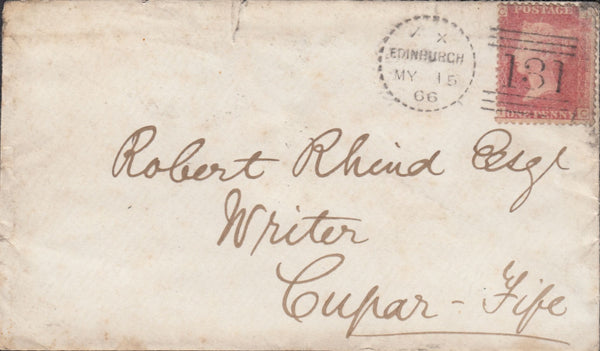 POSTAGE
X
EDINBURGH
MY 15
66
131
ONE PENNY
C
Robert Rhind Esqr
Writer
Cupar - Fife